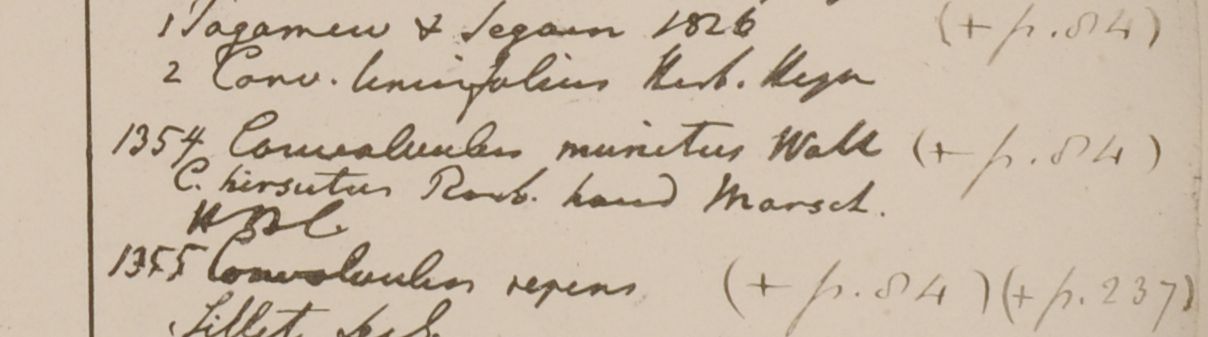 1 Tagamew & Segain 1826 (+ p. 84)
2 Conv. linifolius Herb. Heyn
1354 Convolvulus munitus Wall (+ p. 84)
C. hirsutus Roxb. haud Marsch.
HBC
1355 Convolvulus repens (+ p. 84) (+ p. 237)